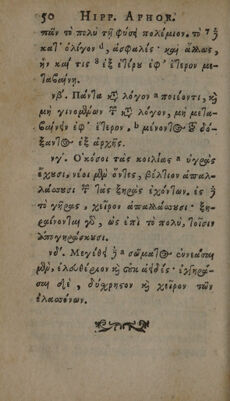 50 HIPP. APHOR.
πᾶν τὸ πολὺ τῇ φύσῃ πολέμιον. τὸ δὲ
κατ' ὀλίγον, ἀσφαλές· καὶ ἄλλως,
ἤν καί τις ἐξ ἑτέρου ἐφ' ἕτερον με-
ταβαίνῃ.
νβ'. Πάντα κατὰ λόγον ποιέοντι, καὶ
μὴ γινομένων κατὰ λόγον, μὴ μετα-
βαίνειν ἐφ' ἕτερον, μένοντος τοῦ δό-
ξαντος ἐξ ἀρχῆς.
νγ'. Ὁκόσοι τὰς κοιλίας ὑγρὰς
ἔχουσι, νέοι μὲν ὄντες, βέλτιον ἀπαλ-
λάσσουσι τῶν τὰς ξηρὰς ἐχόντων. ἐς δὲ
τὸ γῆρας, χεῖρον ἀπαλλάσσουσι· ξη-
ραίνονται γὰρ, ὡς ἐπὶ τὸ πολὺ, τοῖσιν
ἀπογηράσκουσι.
νδ'. Μεγέθει δὲ σώματος ἐννεάσαι
μὲν, ἐλευθέριον καὶ οὐκ ἀηδές· ἐγγηρά-
σαι δὲ, δύχρηστον καὶ χεῖρον τῶν
ἐλασσόνων.